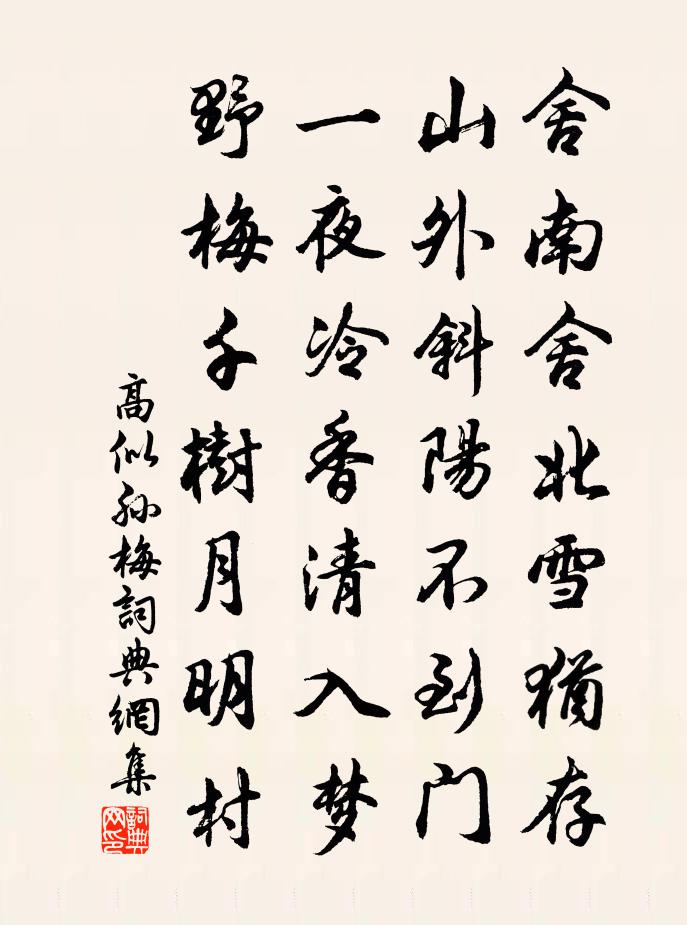 舍南舍北雪猶存
山外斜陽不到門
一夜冷香清入梦
野梅千樹月明村
高似孙梅詞典網集
詞典網印